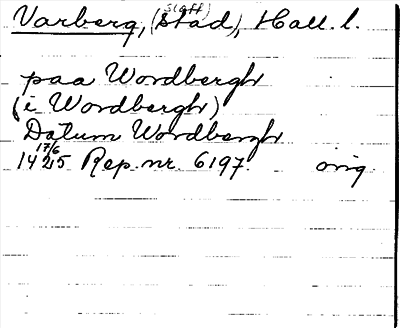 Varberg, (stad), Hall. l.
(slott)
paa Wordbergh
(i Wordbergh)
Datum Wordbergh
1425 17/6 Rep. nr. 6197. orig.